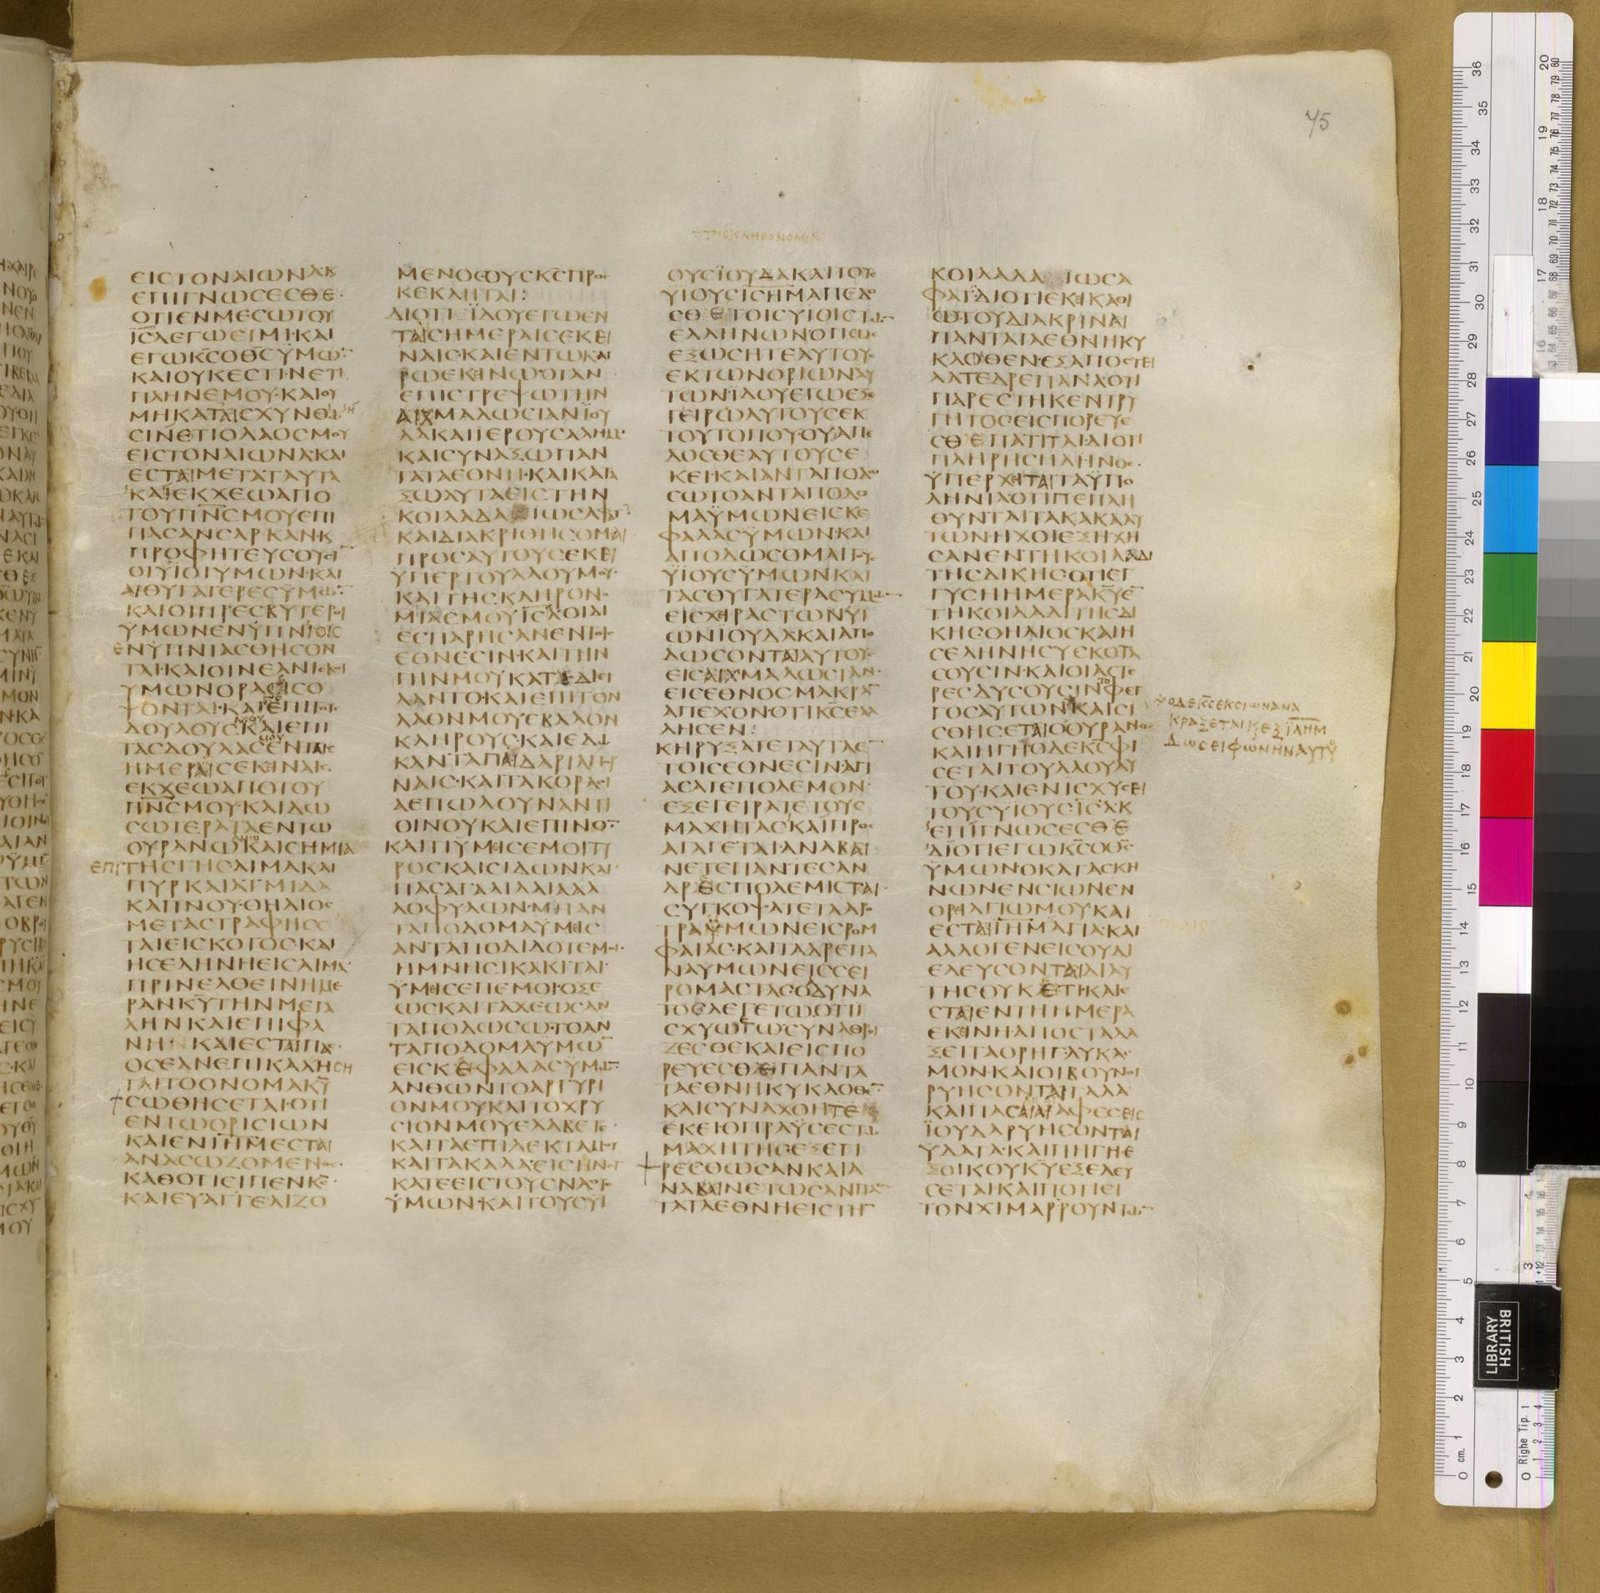 75
ΕΙϹΤΟΝΑΙΩΝΑΚ
ΕΠΙΓΝΩϹΕϹΘΕ·
ΟΤΙΕΝΜΕϹΩΤΟΥ
ΙϹΛΕΓΩΕΙΜΙ·ΚΑΙ
ΕΓΩΚϹΟΘϹΫΜΩ
ΚΑΙΟΥΚΕϹΤΙΝΕΤΙ
ΠΛΗΝΕΜΟΥ·ΚΑΙΟΥ
ΜΗΚΑΤΑΙϹΧΥΝΘΩ
ϹΙΝΕΤΙΟΛΑΟϹΜΟΥ
ΕΙϹΤΟΝΑΙΩΝΑ·ΚΑΙ
ΕϹΤΑΙΜΕΤΑΤΑΥΤΑ
ΚΑΙΕΚΧΕΩΑΠΟ
ΤΟΥΠΝϹΜΟΥΕΠΙ
ΠΑϹΑΝϹΑΡΚΑΝ·Κ
ΠΡΟΦΗΤΕΥϹΟΥϹΙ
ΟΙΫΙΟΙΥΜΩΝ·ΚΑΙ
ΑΙΘΥΓΑΤΕΡΕϹΫΜΩ
ΚΑΙΟΙΠΡΕϹΒΥΤΕΡΟΙ
ΫΜΩΝΕΝΫΠΝΙΟΙϹ
ΕΝΥΠΝΙΑϹΘΗϹΟΝ
ΤΑΙ·ΚΑΙΟΙΝΕΑΝΙϹΚΟΙ
ΥΜΩΝΟΡΑϹΙϹΟ
ΨΟΝΤΑΙ·ΚΑΙΕΠΙΤΟΥϹ
ΔΟΥΛΟΥϹΜΟΥΚΑΙΕΠΙ
ΤΑϹΔΟΥΛΑϹΕΝΤΑΙϹ
ΗΜΕΡΑΙϹΕΚΕΙΝΑΙϹ
ΕΚΧΕΩΑΠΟΤΟΥ
ΠΝϹΜΟΥ·ΚΑΙΔΩ
ϹΩΤΕΡΑΤΑΕΝΤΩ
ΟΥΡΑΝΩΚΑΙϹΗΜΙΑ
ΕΠΙΤΗϹΓΗϹΑΙΜΑΚΑΙ
ΠΥΡΚΑΙΑΤΜΙΔΑ
ΚΑΠΝΟΥ·ΟΗΛΙΟϹ
ΜΕΤΑϹΤΡΑΦΗϹΕ
ΤΑΙΕΙϹΚΟΤΟϹΚΑΙ
ΗϹΕΛΗΝΗΕΙϹΑΙΜΑ
ΠΡΙΝΕΛΘΕΙΝΗΜΕ
ΡΑΝΚΥΤΗΝΜΕΓΑ
ΛΗΝΚΑΙΕΠΙΦΑ
ΝΗΚΑΙΕϹΤΑΙΠΑϹ
ΟϹΕΑΝΕΠΙΚΑΛΗϹΗ
ΤΑΙΤΟΟΝΟΜΑΚΥ
ϹΩΘΗϹΕΤΑΙ·ΟΤΙ
ΕΝΤΩΟΡΙϹΙΩΝ
ΚΑΙΕΝΙΗΜΕϹΤΑΙ
ΑΝΑϹΩΖΟΜΕΝΟϹ
ΚΑΘΟΤΙΕΙΠΕΝΚϹ
ΚΑΙΕΥΑΓΓΕΛΙΖΟ
ΜΕΝΟΙΟΥϹΚϹΠΡΟϹ
ΚΕΚΛΗΤΑΙ:
ΔΙΟΤΙΪΔΟΥΕΓΩΕΝ
ΤΑΙϹΗΜΕΡΑΙϹΕΚΕΙ
ΝΑΙϹ·ΚΑΙΕΝΤΩΚΑΙ
ΡΩΕΚΕΙΝΩ·ΟΤΑΝ
ΕΠΙϹΤΡΕΨΩΤΗΝ
ΑΙΧΜΑΛΩϹΙΑΝΪΟΥ
ΔΑΚΑΙΪΕΡΟΥϹΑΛΗΜ·
ΚΑΙϹΥΝΑΞΩΠΑΝ
ΤΑΤΑΕΘΝΗ·ΚΑΙΚΑΤΑ
ΞΩΑΥΤΑΕΙϹΤΗΝ
ΚΟΙΛΑΔΑΙΩϹΑΦΑΤ
ΚΑΙΔΙΑΚΡΙΘΗϹΟΜΑΙ
ΠΡΟϹΑΥΤΟΥϹΕΚΕΙ
ΫΠΕΡΤΟΥΛΑΟΥΜΟΥ·
ΚΑΙΤΗϹΚΛΗΡΟΝΟ
ΜΙΑϹΜΟΥΙϹΛΟΙΔΙ
ΕϹΠΑΡΗϹΑΝΕΝΤΟΙϹ
ΕΘΝΕϹΙΝ·ΚΑΙΤΗΝ
ΓΗΝΜΟΥΚΑΤΕΔΙΕΙ
ΛΑΝΤΟ·ΚΑΙΕΠΙΤΟΝ
ΛΑΟΝΜΟΥΕΒΑΛΟΝ
ΚΛΗΡΟΥϹΚΑΙΕΔΩ
ΚΑΝΤΑΠΑΙΔΑΡΙΑΠΟΡ
ΝΑΙϹ·ΚΑΙΤΑΚΟΡΑϹΙ
ΑΕΠΩΛΟΥΝΑΝΤΙ
ΟΙΝΟΥΚΑΙΕΠΙΝΟΝ
ΚΑΙΤΙΫΜΕΙϹΕΜΟΙΤΥ
ΡΟϹΚΑΙϹΙΔΩΝΚΑΙ
ΠΑϹΑΓΑΛΙΛΑΙΑΑΛ
ΛΟΦΥΛΩΝ·ΜΗΑΝ
ΤΑΠΟΔΟΜΑΫΜΕΙϹ
ΑΝΤΑΠΟΔΙΔΟΤΕΜΟΙ·
ΗΜΝΗϹΙΚΑΚΙΤΑΙ
ΥΜΕΙϹΕΠΕΜΟΙ·ΟΞΕ
ΩϹΚΑΙΤΑΧΕΩϹΑΝ
ΤΑΠΟΔΩϹΩΤΟΑΝ
ΤΑΠΟΔΟΜΑΥΜΩ
ΕΙϹΚΕΦΑΛΑϹΫΜΩ
ΑΝΘΩΝΤΟΑΡΓΥΡΙ
ΟΝΜΟΥΚΑΙΤΟΧΡΥ
ϹΙΟΝΜΟΥΕΛΑΒΕΤΕ·
ΚΑΙΤΑΕΠΙΛΕΚΤΑΜΟΥ
ΚΑΙΤΑΚΑΛΑΕΙϹΗΝΕΓ
ΚΑΤΕΕΙϹΤΟΥϹΝΑΟΥϹ
ΫΜΩΝ·ΚΑΙΤΟΥϹΥΙ
ΟΥϹΪΟΥΔΑΚΑΙΤΟΥϹ
ΥΙΟΥϹΙϹΗΜΑΠΕΔΟ
ϹΘΕΤΟΙϹΥΙΟΙϹΤΩ
ΕΛΛΗΝΩΝΟΠΩϹ
ΕΞΩϹΗΤΕΑΥΤΟΥϹ
ΕΚΤΩΝΟΡΙΩΝΑΥ
ΤΩΝΙΔΟΥΕΓΩΕΞΕ
ΓΕΙΡΩΑΥΤΟΥϹΕΚ
ΤΟΥΤΟΠΟΥ·ΟΥΑΠΕ
ΔΟϹΘΕΑΥΤΟΥϹΕ
ΚΕΙ·ΚΑΙΑΝΤΑΠΟΔΩ
ϹΩΤΟΑΝΤΑΠΟΔΟ
ΜΑΫΜΩΝΕΙϹΚΕ
ΦΑΛΑϹΫΜΩΝ·ΚΑΙ
ΑΠΟΔΩϹΟΜΑΙΤΟΥϹ
ΫΙΟΥϹΫΜΩΝΚΑΙ
ΤΑϹΘΥΓΑΤΕΡΑϹΥΜΩ
ΕΙϹΧΕΙΡΑϹΤΩΝΥΙ
ΩΝΙΟΥΔΑΚΑΙΑΠΟ
ΔΩϹΟΝΤΑΙΑΥΤΟΥϹ
ΕΙϹΑΙΧΜΑΛΩϹΙΑΝ·
ΕΙϹΕΘΝΟϹΜΑΚΡΑ
ΑΠΕΧΟΝΟΤΙΚϹΕΛΑ
ΛΗϹΕΝ:
ΚΗΡΥΞΑΤΕΤΑΥΤΑΕ
ΤΟΙϹΕΘΝΕϹΙΝΑΓΙ
ΑϹΑΤΕΠΟΛΕΜΟΝ·
ΕΞΕΓΕΙΡΑΤΕΤΟΥϹ
ΜΑΧΗΤΑϹΚΑΙΠΡΟϹ
ΑΓΑΓΕΤΑΙ·ΑΝΑΒΑΙ
ΝΕΤΕΠΑΝΤΕϹΑΝ
ΔΡΕϹΠΟΛΕΜΙϹΤΑΙ·
ϹΥΓΚΟΨΑΤΕΤΑΑΡΟ
ΤΡΑΫΜΩΝΕΙϹΡΟΜ
ΦΑΙΑϹ·ΚΑΙΤΑΔΡΕΠΑ
ΝΑΥΜΩΝΕΙϹϹΕΙ
ΡΟΜΑϹΤΑϹΟΔΥΝΑ
ΤΟϹΛΕΓΕΤΩΟΤΙΙ
ϹΧΥΩΤΩϹΥΝΑΘΡΟΙ
ΖΕϹΘΕΚΑΙΕΙϹΠΟ
ΡΕΥΕϹΘΑΙΠΑΝΤΑ
ΤΑΕΘΝΗΚΥΚΛΟΘΕ
ΚΑΙϹΥΝΑΧΘΗΤΕ
ΕΚΕΙΟΠΡΑΫϹΕϹΤΩ
ΜΑΧΗΤΗϹΕΞΕΓΙ
ΡΕϹΘΩϹΑΝΚΑΙΑ
ΝΑΒΑΙΝΕΤΩϹΑΝΠΑ
ΤΑΤΑΕΘΝΗΕΙϹΤΗ
ΚΟΙΛΑΔΑΙΩϹΑ
ΦΑΤΔΙΟΤΙΕΚΕΙΚΑΘΙ
ϹΩΤΟΥΔΙΑΚΡΙΝΑΙ
ΠΑΝΤΑΤΑΕΘΝΗΚΥ
ΚΛΟΘΕΝΕΞΑΠΟϹΤΕΙ
ΛΑΤΕΔΡΕΠΑΝΑΟΤΙ
ΠΑΡΕϹΤΗΚΕΝΤΡΥ
ΓΗΤΟϹΕΙϹΠΟΡΕΥΕ
ϹΘΕΠΑΤΙΤΑΙΔΙΟΤΙ
ΠΛΗΡΗϹΗΛΗΝΟϹ·
ΫΠΕΡΧΕΙΤΑΙΤΑΫΠΟ
ΛΗΝΙΑΟΤΙΠΕΠΛΗ
ΘΥΝΤΑΙΤΑΚΑΚΑΑΥ
ΤΩΝ·ΗΧΟΙΕΞΗΧΗ
ϹΑΝΕΝΤΗΚΟΙΛΑΔΙ
ΤΗϹΔΙΚΗϹΟΤΙΕΓ
ΓΥϹΗΗΜΕΡΑΚΥΕ
ΤΗΚΟΙΛΑΔΙΤΗϹΔΙ
ΚΗϹΟΗΛΙΟϹΚΑΙΗ
ϹΕΛΗΝΗϹΥϹΚΟΤΑ
ϹΟΥϹΙΝ·ΚΑΙΟΙΑϹΤΕ
ΡΕϹΔΥϹΟΥϹΙΝΦΕΓ
ΓΟϹΑΥΤΩΝΚΑΙϹΙ
ϹΘΗϹΕΤΑΙΟΟΥΡΑΝΟϹ
ΚΑΙΗΓΗΟΔΕΚϹΦΙ
ϹΕΤΑΙΤΟΥΛΑΟΥΑΥ
ΤΟΥ·ΚΑΙΕΝΙϹΧΥϹΕΙ
ΤΟΥϹΥΙΟΥϹΙϹΛΚ
ΕΠΙΓΝΩϹΕϹΘΕ
ΔΙΟΤΙΕΓΩΚϹΟΘϹ
ΫΜΩΝΟΚΑΤΑϹΚΗ
ΝΩΝΕΝϹΙΩΝΕΝ
ΟΡΕΙΑΓΙΩΜΟΥΚΑΙ
ΕϹΤΑΙΠΗΜΑΓΙΑ·ΚΑΙ
ΑΛΛΟΓΕΝΕΙϹΟΥΔΙ
ΕΛΕΥϹΟΝΤΑΙΔΙΑΥ
ΤΗϹΟΥΚΕΤΙ·ΚΑΙΕ
ϹΤΑΙΕΝΤΗΗΜΕΡΑ
ΕΚΕΙΝΗΑΠΟϹΤΑΛΑ
ΞΕΙΤΑΟΡΗΓΛΥΚΑϹ
ΜΟΝ·ΚΑΙΟΙΒΟΥΝΟΙ
ΡΥΗϹΟΝΤΑΙΓΑΛΑ
ΚΑΙΠΑϹΑΙΑΙΑΦΕϹΕΙϹ
ΪΟΥΔΑΡΥΗϹΟΝΤΑΙ
ΥΔΑΤΑ·ΚΑΙΠΗΓΗΕ
ΞΟΙΚΟΥΚΥΕΞΕΛΕΥ
ϹΕΤΑΙΚΑΙΠΟΤΙΕΙ
ΤΟΝΧΙΜΑΡΡΟΥΝΤΩ
ΟΔΕΚϹΕΚϹΙΩΝΑΝΑ
ΚΡΑΞΕΤΑΙΚΕΞΙΛΗΜ
ΔΩϹΕΙΦΩΝΗΝΑΥΤΟΥ
BRITISH
LIBRARY